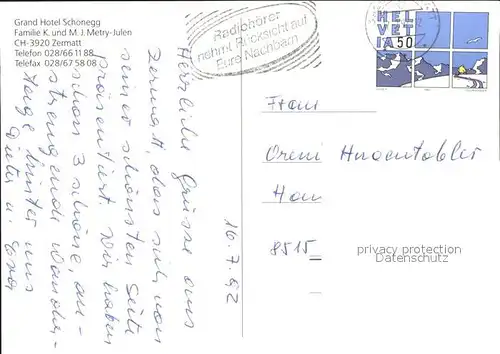 Grand Hotel Schönegg
Familie K. und M. J. Metry-Julen
CH-3920 Zermatt
Telefon 028/66 11 88
Telefax 028/67 58 08
Radiohörer
nehmt Rücksicht auf
Eure Nachbarn
HEL
VET
IA 50
16.7.92
Herrliche Grüsse aus
Zermatt, das sich von
seiner schönsten Seite
präsentiert. Wir haben
schon 3 schöne, an-
strengende Wander-
tage hinter uns
Frau
Vreni
8515
privacy protection
www.delcampe.net